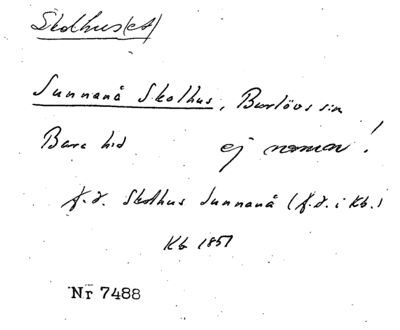 Skolhus(et)
Sunnanå Skolhus, Burlövs sn
Bara hd ej namn!
f.d. Skolhus Sunnanå (f.d. i Kb.)
Kb 1851
Nr 7488